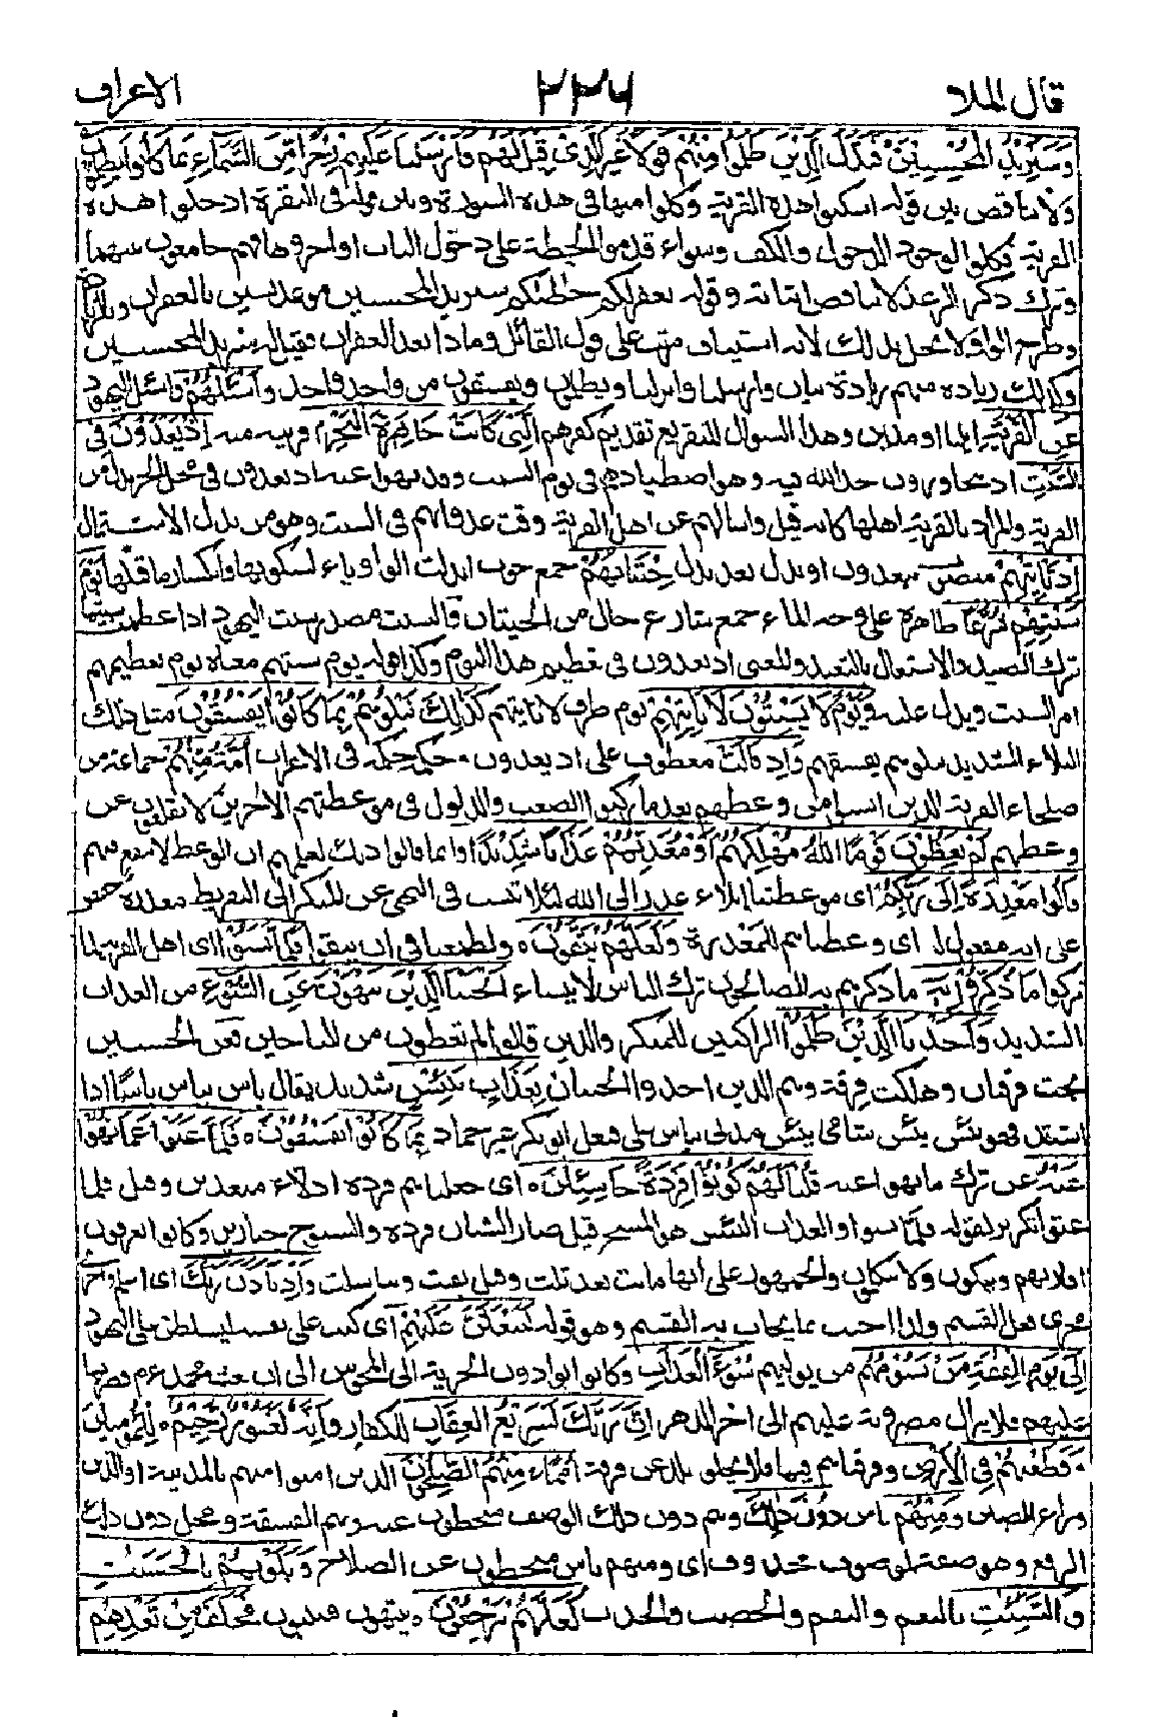 قال الملا ٢٣٦ الاعراف
وَسَنَزِيْدُ الْمُحْسِنِيْنَ فَبَدَّلَ الَّذِيْنَ ظَلَمُوْا مِنْهُمْ قَوْلًا غَيْرَ الَّذِىْ قِيْلَ لَهُمْ فَاَرْسَلْنَا عَلَيْهِمْ رِجْزًا مِّنَ السَّمَآءِ بِمَا كَانُوْا يَظْلِمُوْنَ
ولا تناقض بين قوله اسكنوا هذه القرية وكلوا منها فى هذه السورة وبين قوله فى البقرة ادخلوا هذه
القرية فكلوا لوجود الدخول والسكنى وسواء قدموا الحطة على دخول الباب او اخروها فهم جامعون بينهما
وترك ذكر الرغد لا يناقض اثباته وقوله نغفر لكم خطيئتكم سنزيد المحسنين موعد بشيئين بالغفران وبالزيادة
وطرح الواو لا يخل بذلك لانه استيناف مرتب على قول القائل وماذا بعد الغفران فقيل له سنزيد المحسنين
وكذلك زيادة منهم زيادة بيان وارسلنا وانزلنا ويظلمون ويفسقون من واحد واحد وَاسْئَلْهُمْ واسئل اليهود
عَنِ الْقَرْيَةِ ايلة او مدين وهذا السؤال للتقريع بتقديم كفرهم الَّتِىْ كَانَتْ حَاضِرَةَ الْبَحْرِ قريبة منه اِذْ يَعْدُوْنَ فِى
السَّبْتِ اذ يتجاوزون حد الله فيه وهو اصطيادهم فى يوم السبت وقد نهوا عنه اذ يعدون فى محل الجر بدل من
القرية والمراد بالقرية اهلها كانه قيل واسالهم عن اهل القرية وقت عدوانهم فى السبت وهو من بدل الاشتمال
اِذْ تَاْتِيْهِمْ منصوب بيعدون او بدل بعد بدل حِيْتَانُهُمْ جمع حوت ابدلت الواو ياء لسكونها وانكسار ما قبلها يَوْمَ
سَبْتِهِمْ شُرَّعًا ظاهرة على وجه الماء جمع شارع حال من الحيتان والسبت مصدر سبت اليهود اذا عظمت سبتها
بترك الصيد والاشتغال بالتعبد والمعنى اذ يعدون فى تعظيم هذا اليوم وكذا قوله يوم سبتهم معناه يوم تعظيمهم
امر السبت ويدل عليه وَيَوْمَ لَا يَسْبِتُوْنَ لَا تَاْتِيْهِمْ يوم ظرف لا تاتيهم كَذٰلِكَ نَبْلُوْهُمْ بِمَا كَانُوْا يَفْسُقُوْنَ مثل ذلك
البلاء الشديد نبلوهم بفسقهم وَاِذْ قَالَتْ معطوف على اذ يعدون وحكمه حكمه فى الاعراب اُمَّةٌ مِّنْهُمْ جماعة من
صلحاء القرية الذين ايسوا من وعظهم بعد ما ركبوا الصعب والذلول فى موعظتهم لاخرين لا يقلعون عن
وعظهم لِمَ تَعِظُوْنَ قَوْمًا اللّٰهُ مُهْلِكُهُمْ اَوْ مُعَذِّبُهُمْ عَذَابًا شَدِيْدًا وانما قالوا ذلك لعلمهم ان الوعظ لا ينفع فيهم
قَالُوْا مَعْذِرَةً اِلٰى رَبِّكُمْ اى موعظتنا ابلاء عذر الى الله لئلا ننسب فى النهى عن المنكر الى التفريط معذرة حفص
على انه مفعول له اى وعظناهم للمعذرة وَلَعَلَّهُمْ يَتَّقُوْنَ ولطمعنا فى ان يتقوا فَلَمَّا نَسُوْا اى اهل القرية لما
تركوا مَا ذُكِّرُوْا بِهٖ ما ذكرهم به الصالحون ترك الناسى لما ينساه اَنْجَيْنَا الَّذِيْنَ يَنْهَوْنَ عَنِ السُّوْٓءِ من العذاب
الشديد وَاَخَذْنَا الَّذِيْنَ ظَلَمُوْا الراكبين للمنكر والذين قالوا لم تعظون من الناجين فعن الحسن
نجت فرقتان وهلكت فرقة وهم الذين اخذوا الحيتان بِعَذَابٍ بَئِيْسٍ شديد يقال باس يباس باسا اذا
اشتد فهو بئيس بئس شامى بيس مدنى بيئس على فيعل ابو بكر غير حماد بِمَا كَانُوْا يَفْسُقُوْنَ فَلَمَّا عَتَوْا عَمَّا نُهُوْا
عَنْهُ عن ترك ما نهوا عنه قُلْنَا لَهُمْ كُوْنُوْا قِرَدَةً خَاسِئِيْنَ اى جعلناهم قردة اذلاء مبعدين وقيل فلما
عتوا تكرير لقوله فلما نسوا والعذاب البئيس هو المسخ قيل صار الشبان قردة والشيوخ خنازير وكانوا يعرفون
اقاربهم ويبكون ولا يتكلمون والجمهور على انها ماتت بعد ثلث وقيل بقيت وتناسلت وَاِذْ تَاَذَّنَ رَبُّكَ اى اعلم واجرى
مجرى فعل القسم ولذا اجيب بما يجاب به القسم وهو قوله لَيَبْعَثَنَّ عَلَيْهِمْ اى كتب على نفسه ليسلطن على اليهود
اِلٰى يَوْمِ الْقِيٰمَةِ مَنْ يَّسُوْمُهُمْ من يوليهم سُوْٓءَ الْعَذَابِ وكانوا يؤدون الجزية الى المجوس الى ان بعث محمد عم فضربها
عليهم فلا يزال مضروبة عليهم الى اخر الدهر اِنَّ رَبَّكَ لَسَرِيْعُ الْعِقَابِ للكفار وَاِنَّهٗ لَغَفُوْرٌ رَّحِيْمٌ للمؤمنين
وَقَطَّعْنٰهُمْ فِى الْاَرْضِ وفرقناهم فيها فلا يخلو بلد عن فرقة اُمَمًا مِنْهُمُ الصّٰلِحُوْنَ الذين امنوا منهم بالمدينة او الذين
وراء الصين وَمِنْهُمْ ناس دُوْنَ ذٰلِكَ وهم دون ذلك الوصف منحطون عنه وهم الفسقة ومحل دون ذلك
الرفع وهو صفة لموصوف محذوف اى ومنهم ناس منحطون عن الصلاح وَبَلَوْنٰهُمْ بِالْحَسَنٰتِ
وَالسَّيِّئٰتِ بالنعم والنقم والخصب والجدب لَعَلَّهُمْ يَرْجِعُوْنَ ينتهون فينيبون فَخَلَفَ مِنْ بَعْدِهِمْ